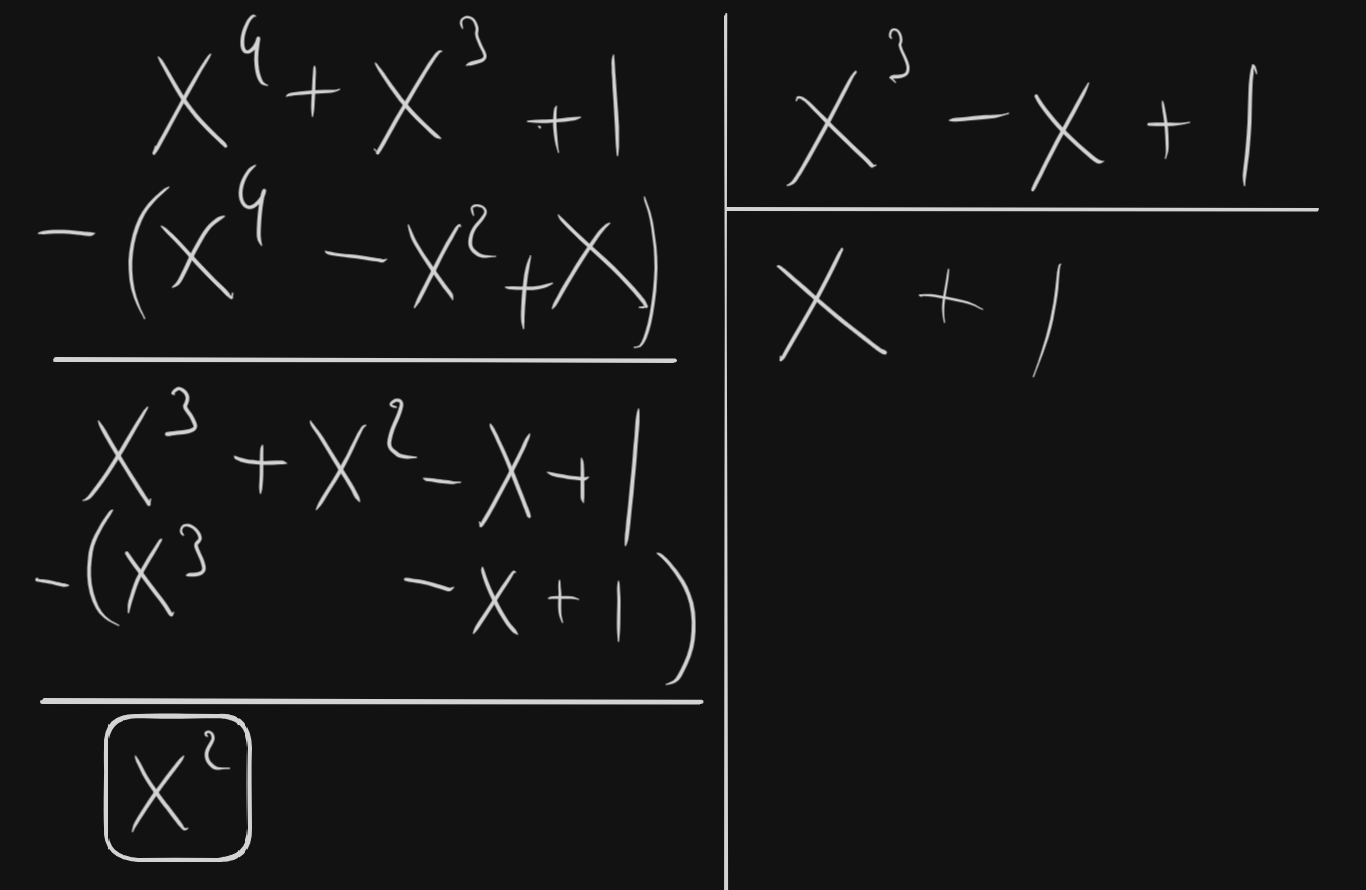 x⁴ + x³ + 1
- (x⁴ - x² + x)
x³ + x² - x + 1
- (x³ - x + 1)
x²
x³ - x + 1
x + 1